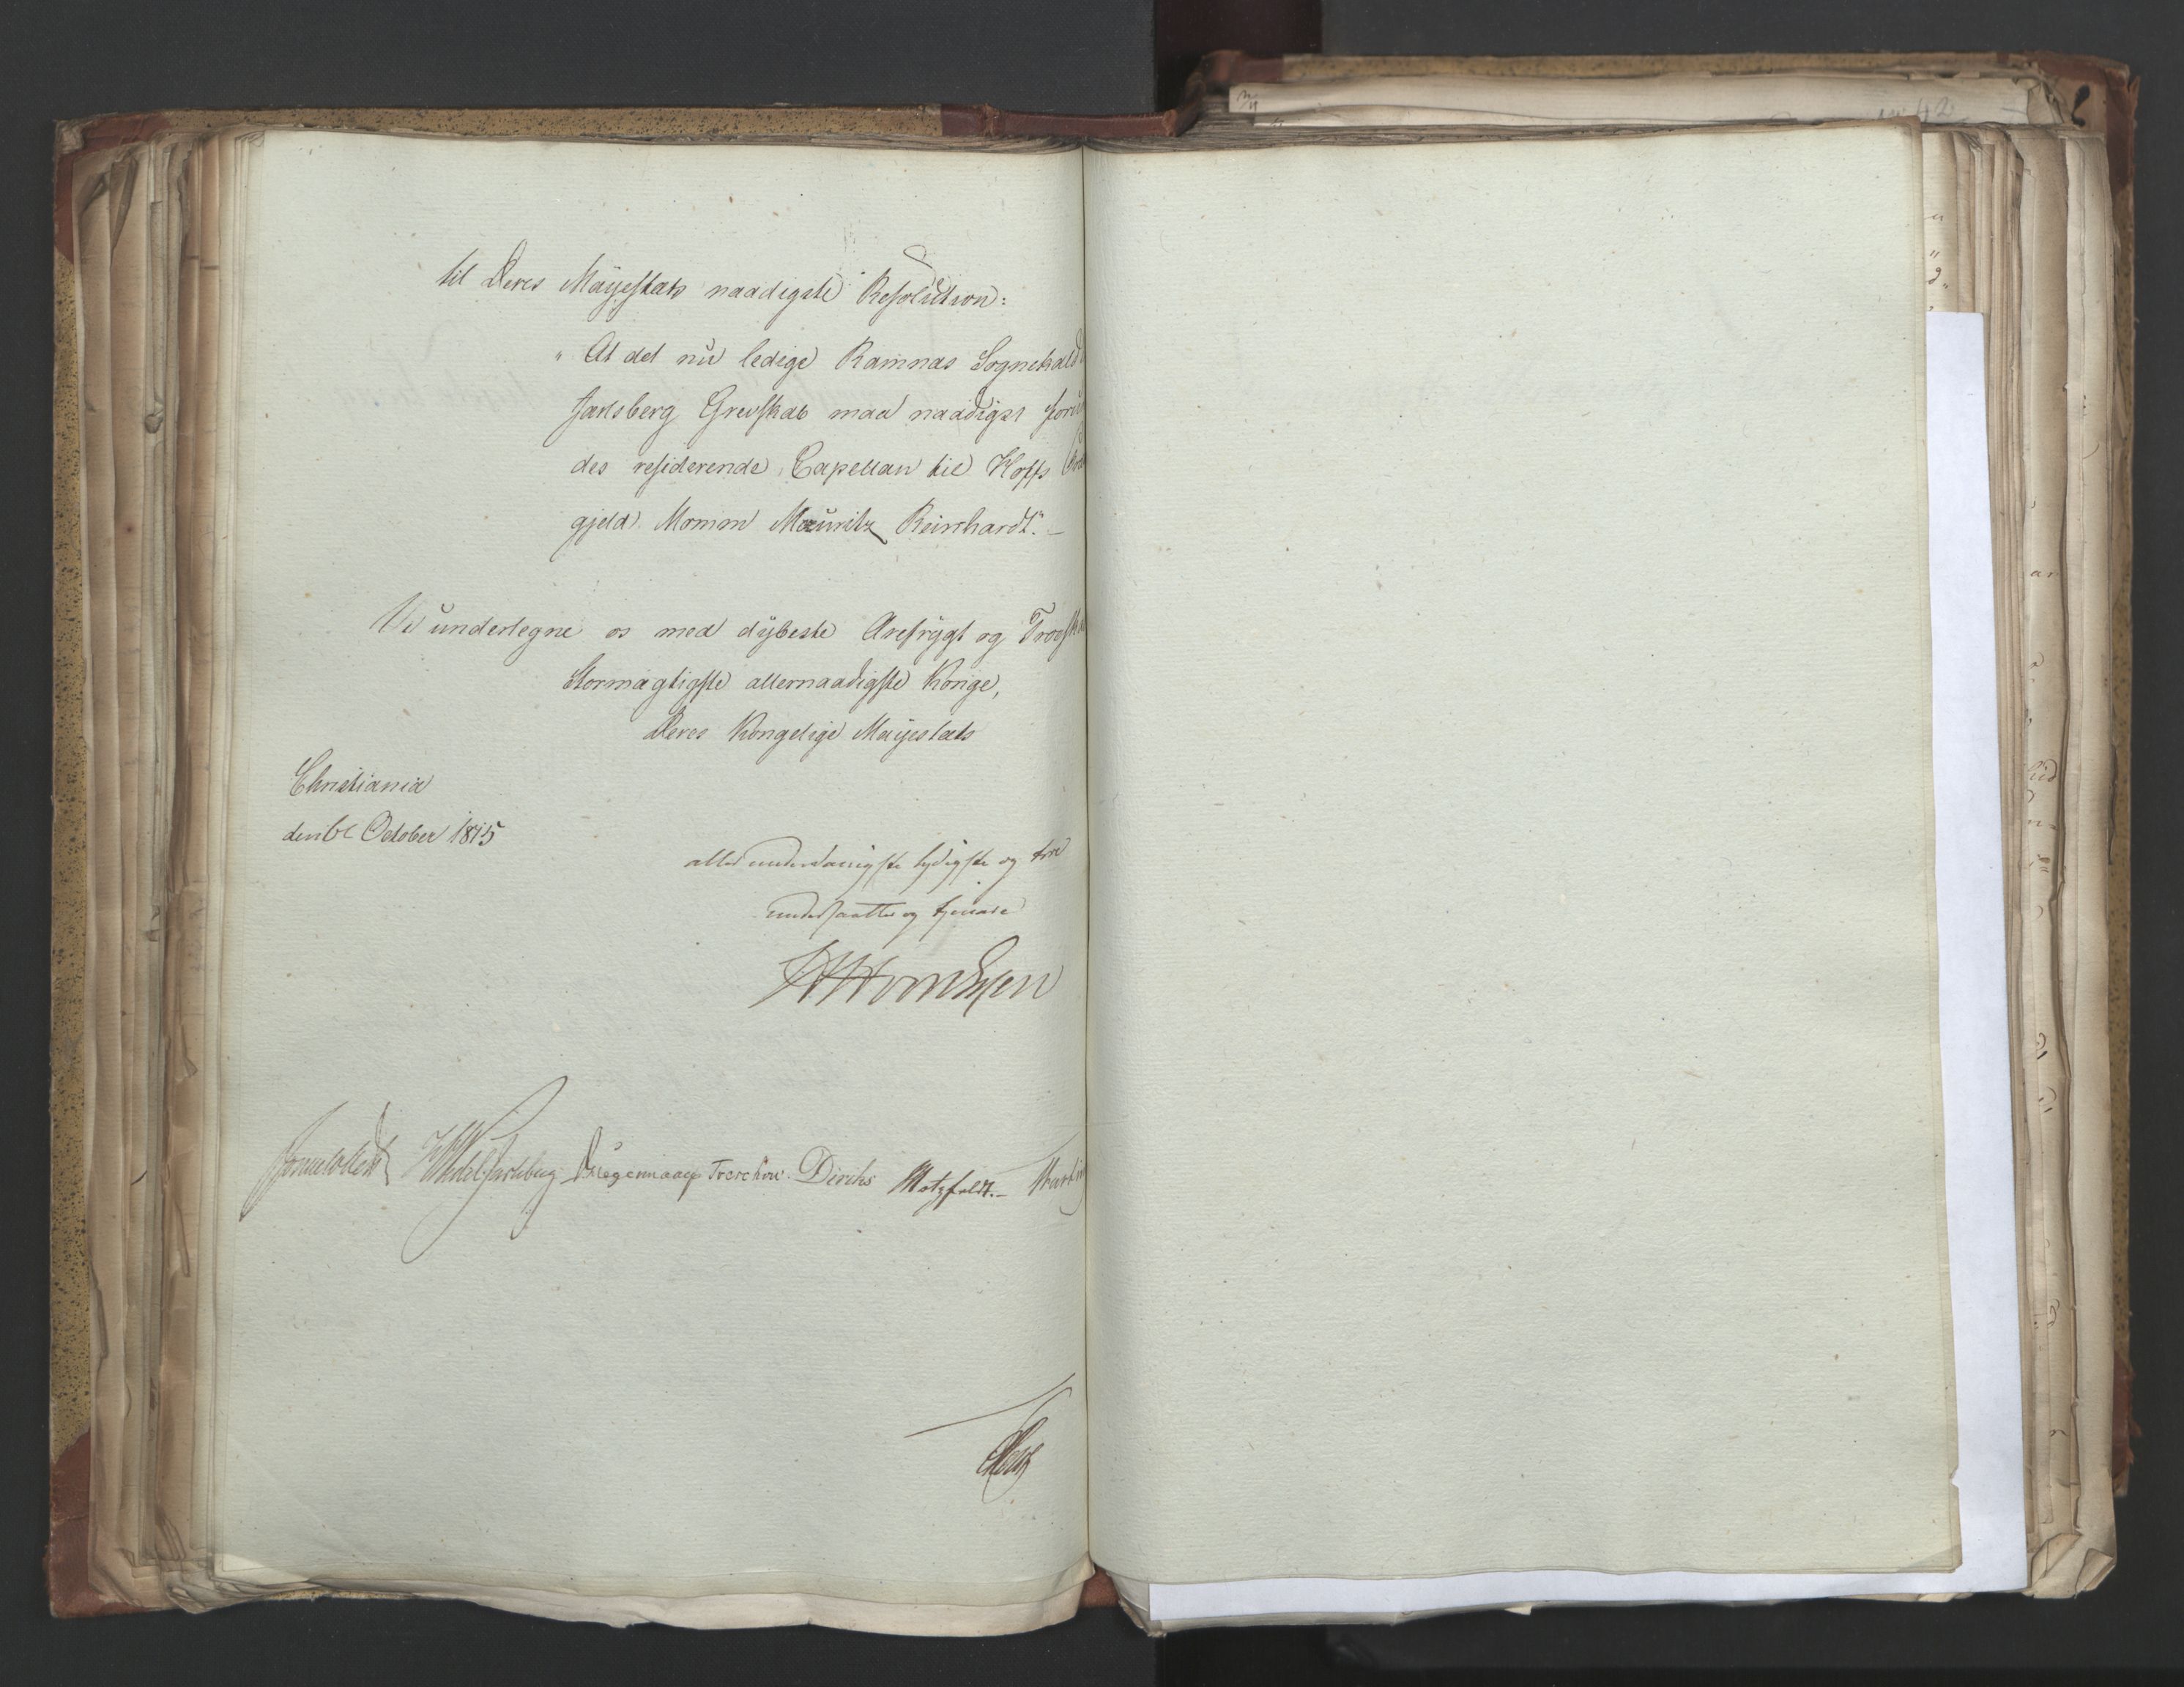 til Deres Mayestæts naadigste Resolution:
" At det nu ledige Ramnæs Sognekald
Jarlsberg Grevskab maa naadigst forun
des residerende Capellan til Hoffs Præ
gjeld Monrad Mauritz Reinhardt". –
Vi undertegne os med dybeste Ærefrygt og Troeska
Stormægtigste allernaadigste Konge,
Deres Kongelige Mayestæts
Christiania
den October 1815
allerunderdanigste lydigste og troe
undersaatter og tjenere
Sommerfeldt HWedel Jarlsberg Krogh Treschow. Diriks Motzfeldt. –